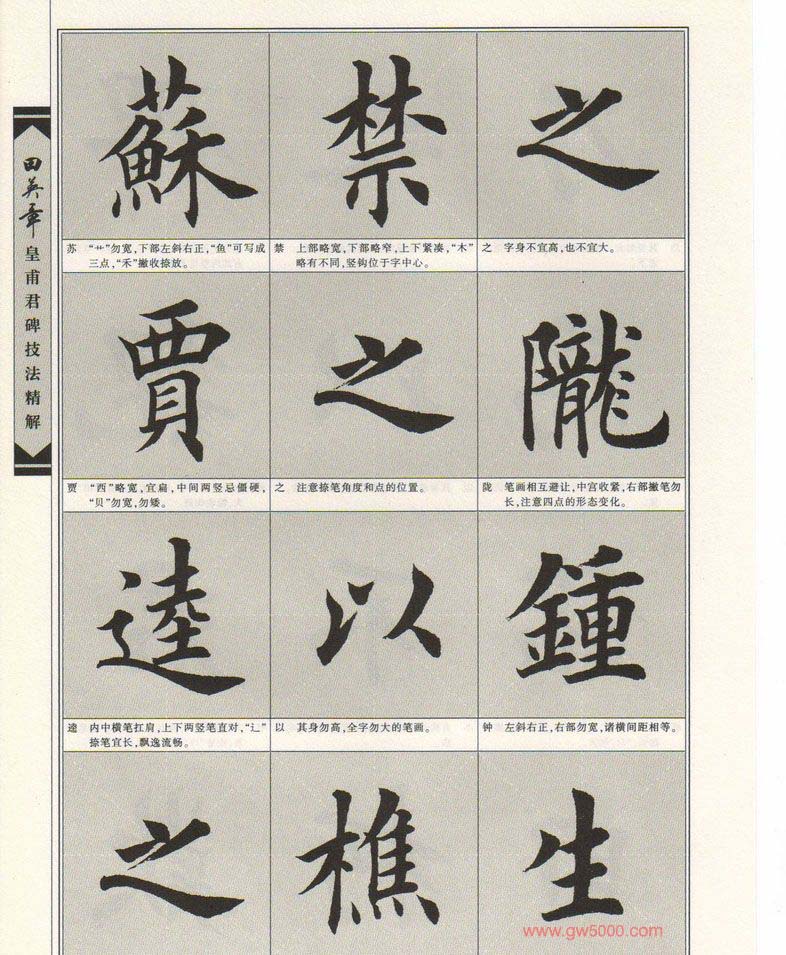 田英章
皇甫君碑技法精解
蘇 禁 之
苏 “艹”勿宽,下部左斜右正,“鱼”可写成
三点,“禾”撇收捺放。
禁 上部略宽,下部略窄,上下紧凑,“木”
略有不同,竖钩位于字中心。
之 字身不宜高,也不宜大。
賈 之 隴
贾 “西”略宽,宜扁,中间两竖忌僵硬,
“贝”勿宽,勿矮。
之 注意捺笔角度和点的位置。
陇 笔画相互避让,中宫收紧,右部撇笔勿
长,注意四点的形态变化。
逵 以 鍾
逵 内中横笔扛肩,上下两竖笔直对,“辶”
捺笔宜长,飘逸流畅。
以 其身勿高,全字勿大的笔画。
钟 左斜右正,右部勿宽,诸横间距相等。
之 樵 生
www.gw5000.com